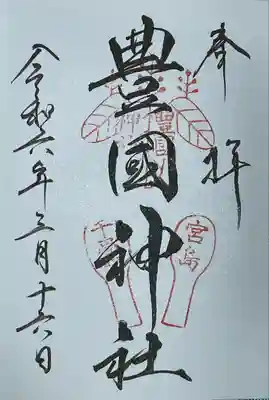 奉拝
豊國神社
令和六年三月十六日
宮島
千畳閣